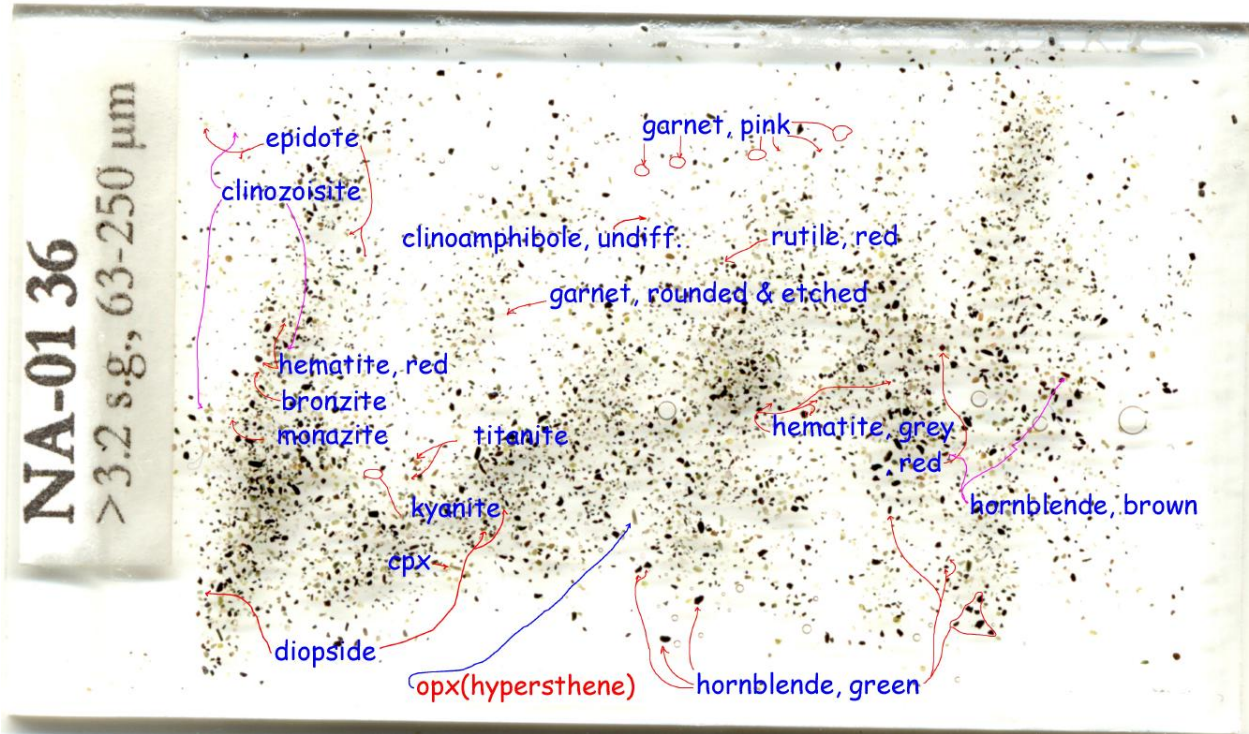 NA-01 36
>3.2 s.g, 63-250 µm
epidote
garnet, pink
clinozoisite
clinoamphibole, undiff.
rutile, red
garnet, rounded & etched
hematite, red
bronzite
monazite
titanite
hematite, grey
, red
kyanite
hornblende, brown
cpx
diopside
opx(hypersthene)
hornblende, green